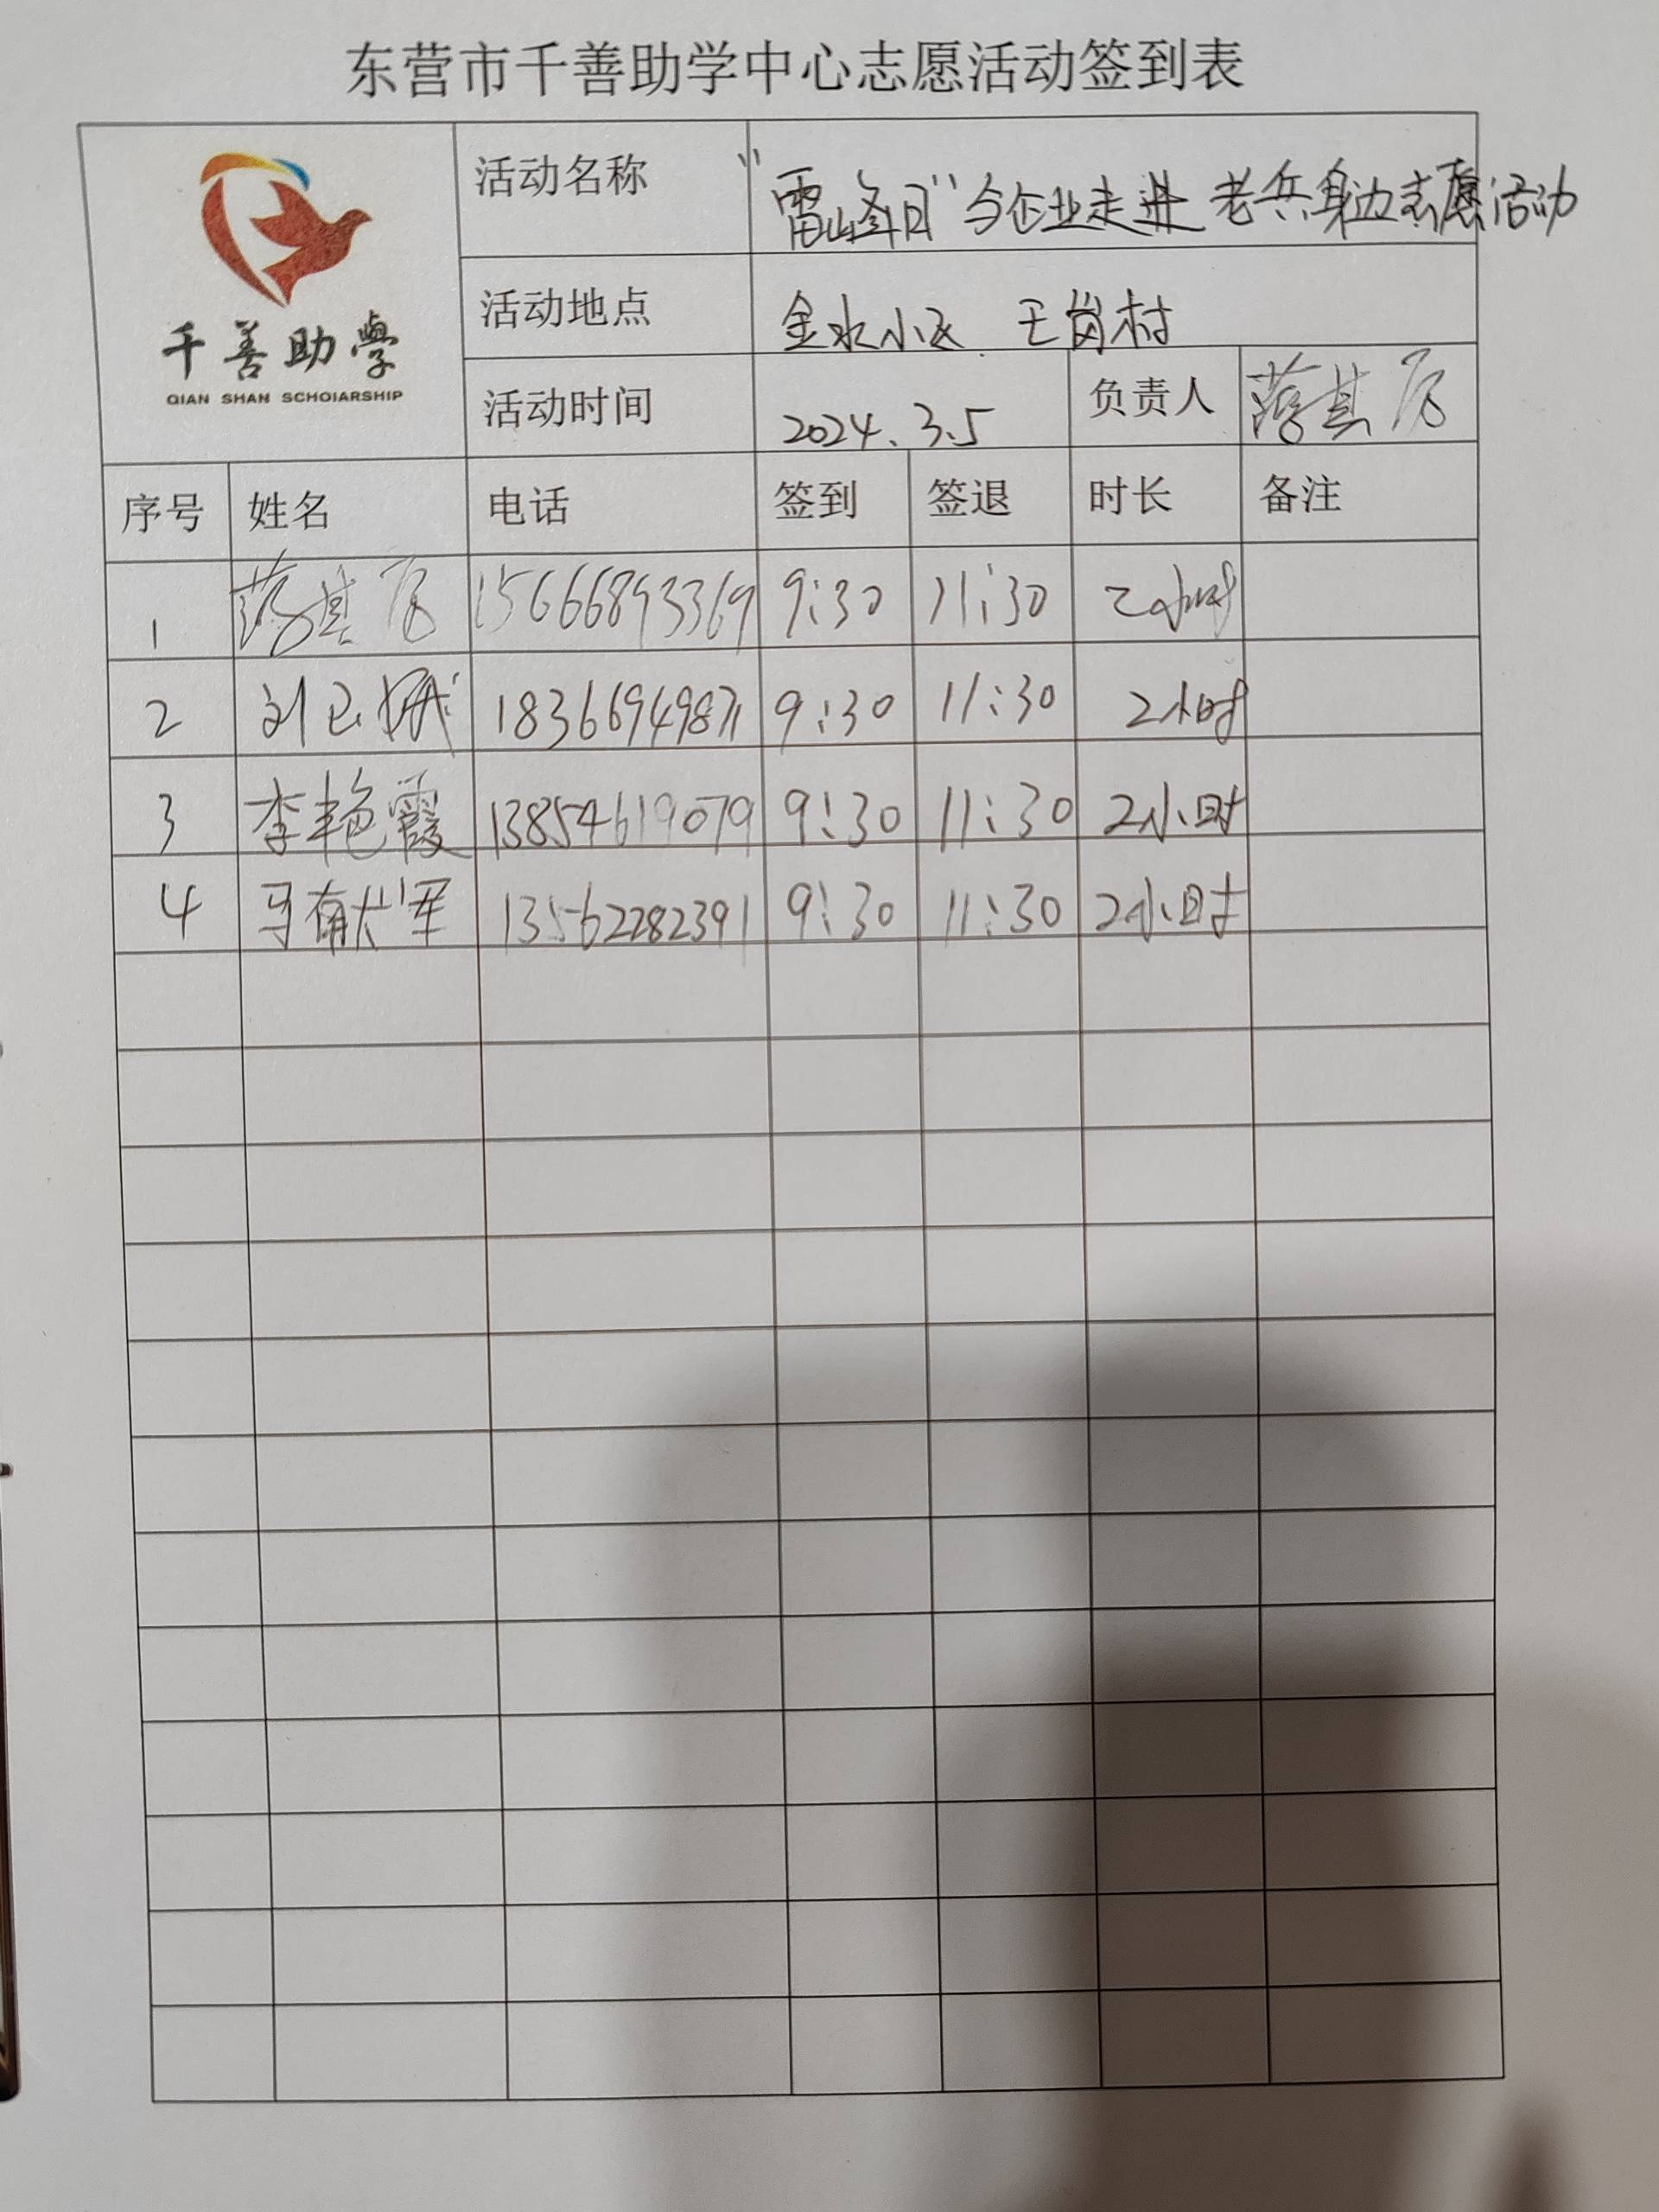 东营市千善助学中心志愿活动签到表
千善助學
QIAN SHAN SCHOIARSHIP
活动名称 "雷峰日"与企业走进老兵身边志愿活动
活动地点 金水小区 王岗村
活动时间 2024.3.5 负责人
序号 姓名 电话 签到 签退 时长 备注
1 15666893369 9:30 11:30 2小时
2 刘 18366949871 9:30 11:30 2小时
3 李艳霞 13854619079 9:30 11:30 2小时
4 马献军 13562282391 9:30 11:30 2小时